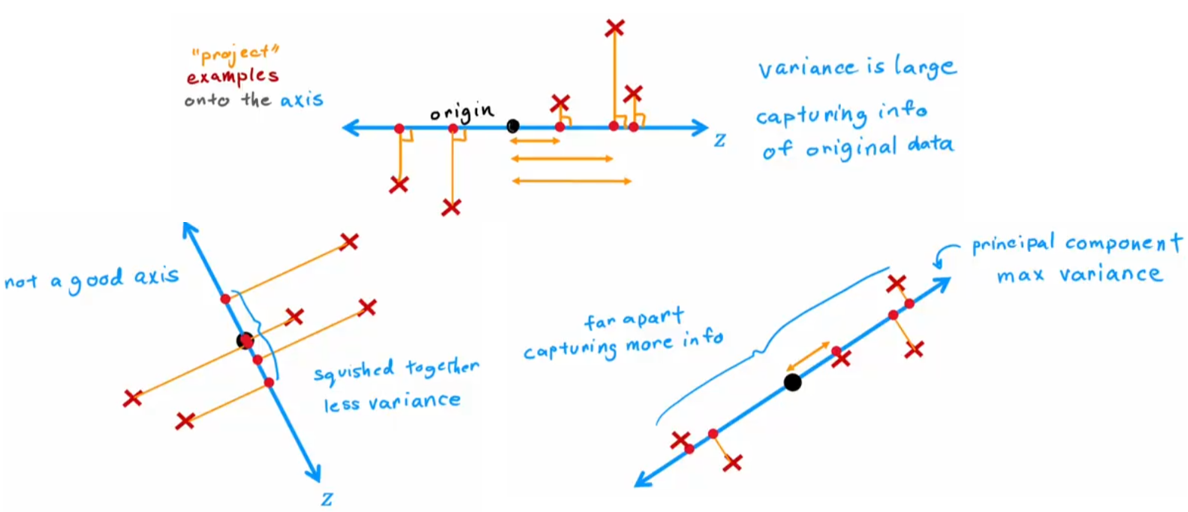 "project"
examples
onto the axis
origin
z
variance is large
capturing info
of original data
not a good axis
squished together
less variance
z
far apart
capturing more info
principal component
max variance